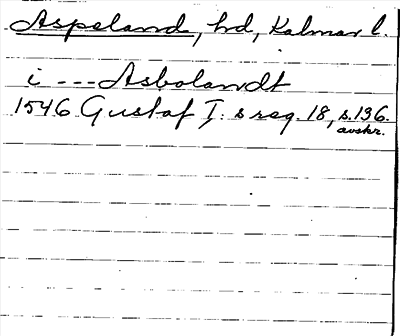 Aspeland, hd, Kalmar l.
i --- Asbolandt
1546 Gustaf I:s reg. 18, s. 196.
avskr.